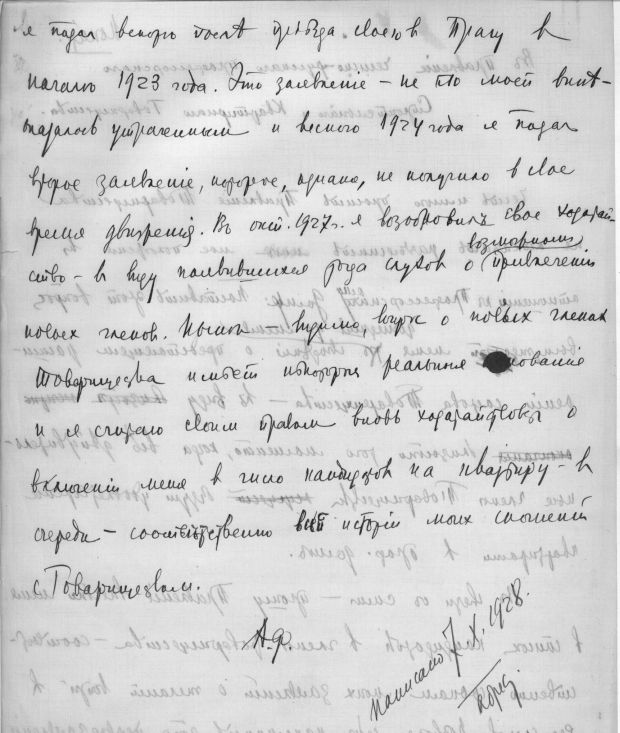 я подал вскорѣ послѣ пріѣзда своего в Прагу в
началѣ 1923 года. Это заявленіе – не по моей винѣ –
оказалось утраченным и весною 1924 года я подал
второе заявленіе, которое, однако, не получило в свое
время движенія. Въ окт. 1927 г. я возобновилъ свое ходатай-
ство – в виду появившихся рода слухов о возможном привлеченіи
новых членов. Нынѣ – видимо вопрос о новых членах
Товарищества имѣет нѣкоторыя реальныя основанія
и я считаю своим правом вновь ходатайствовать о
включеніи меня в число кандидатов на квартиру – в
очереди – соотвѣтственно всей исторіи моих сношеній
с Товариществом.
А.Ф.
написано 7/X.1928.